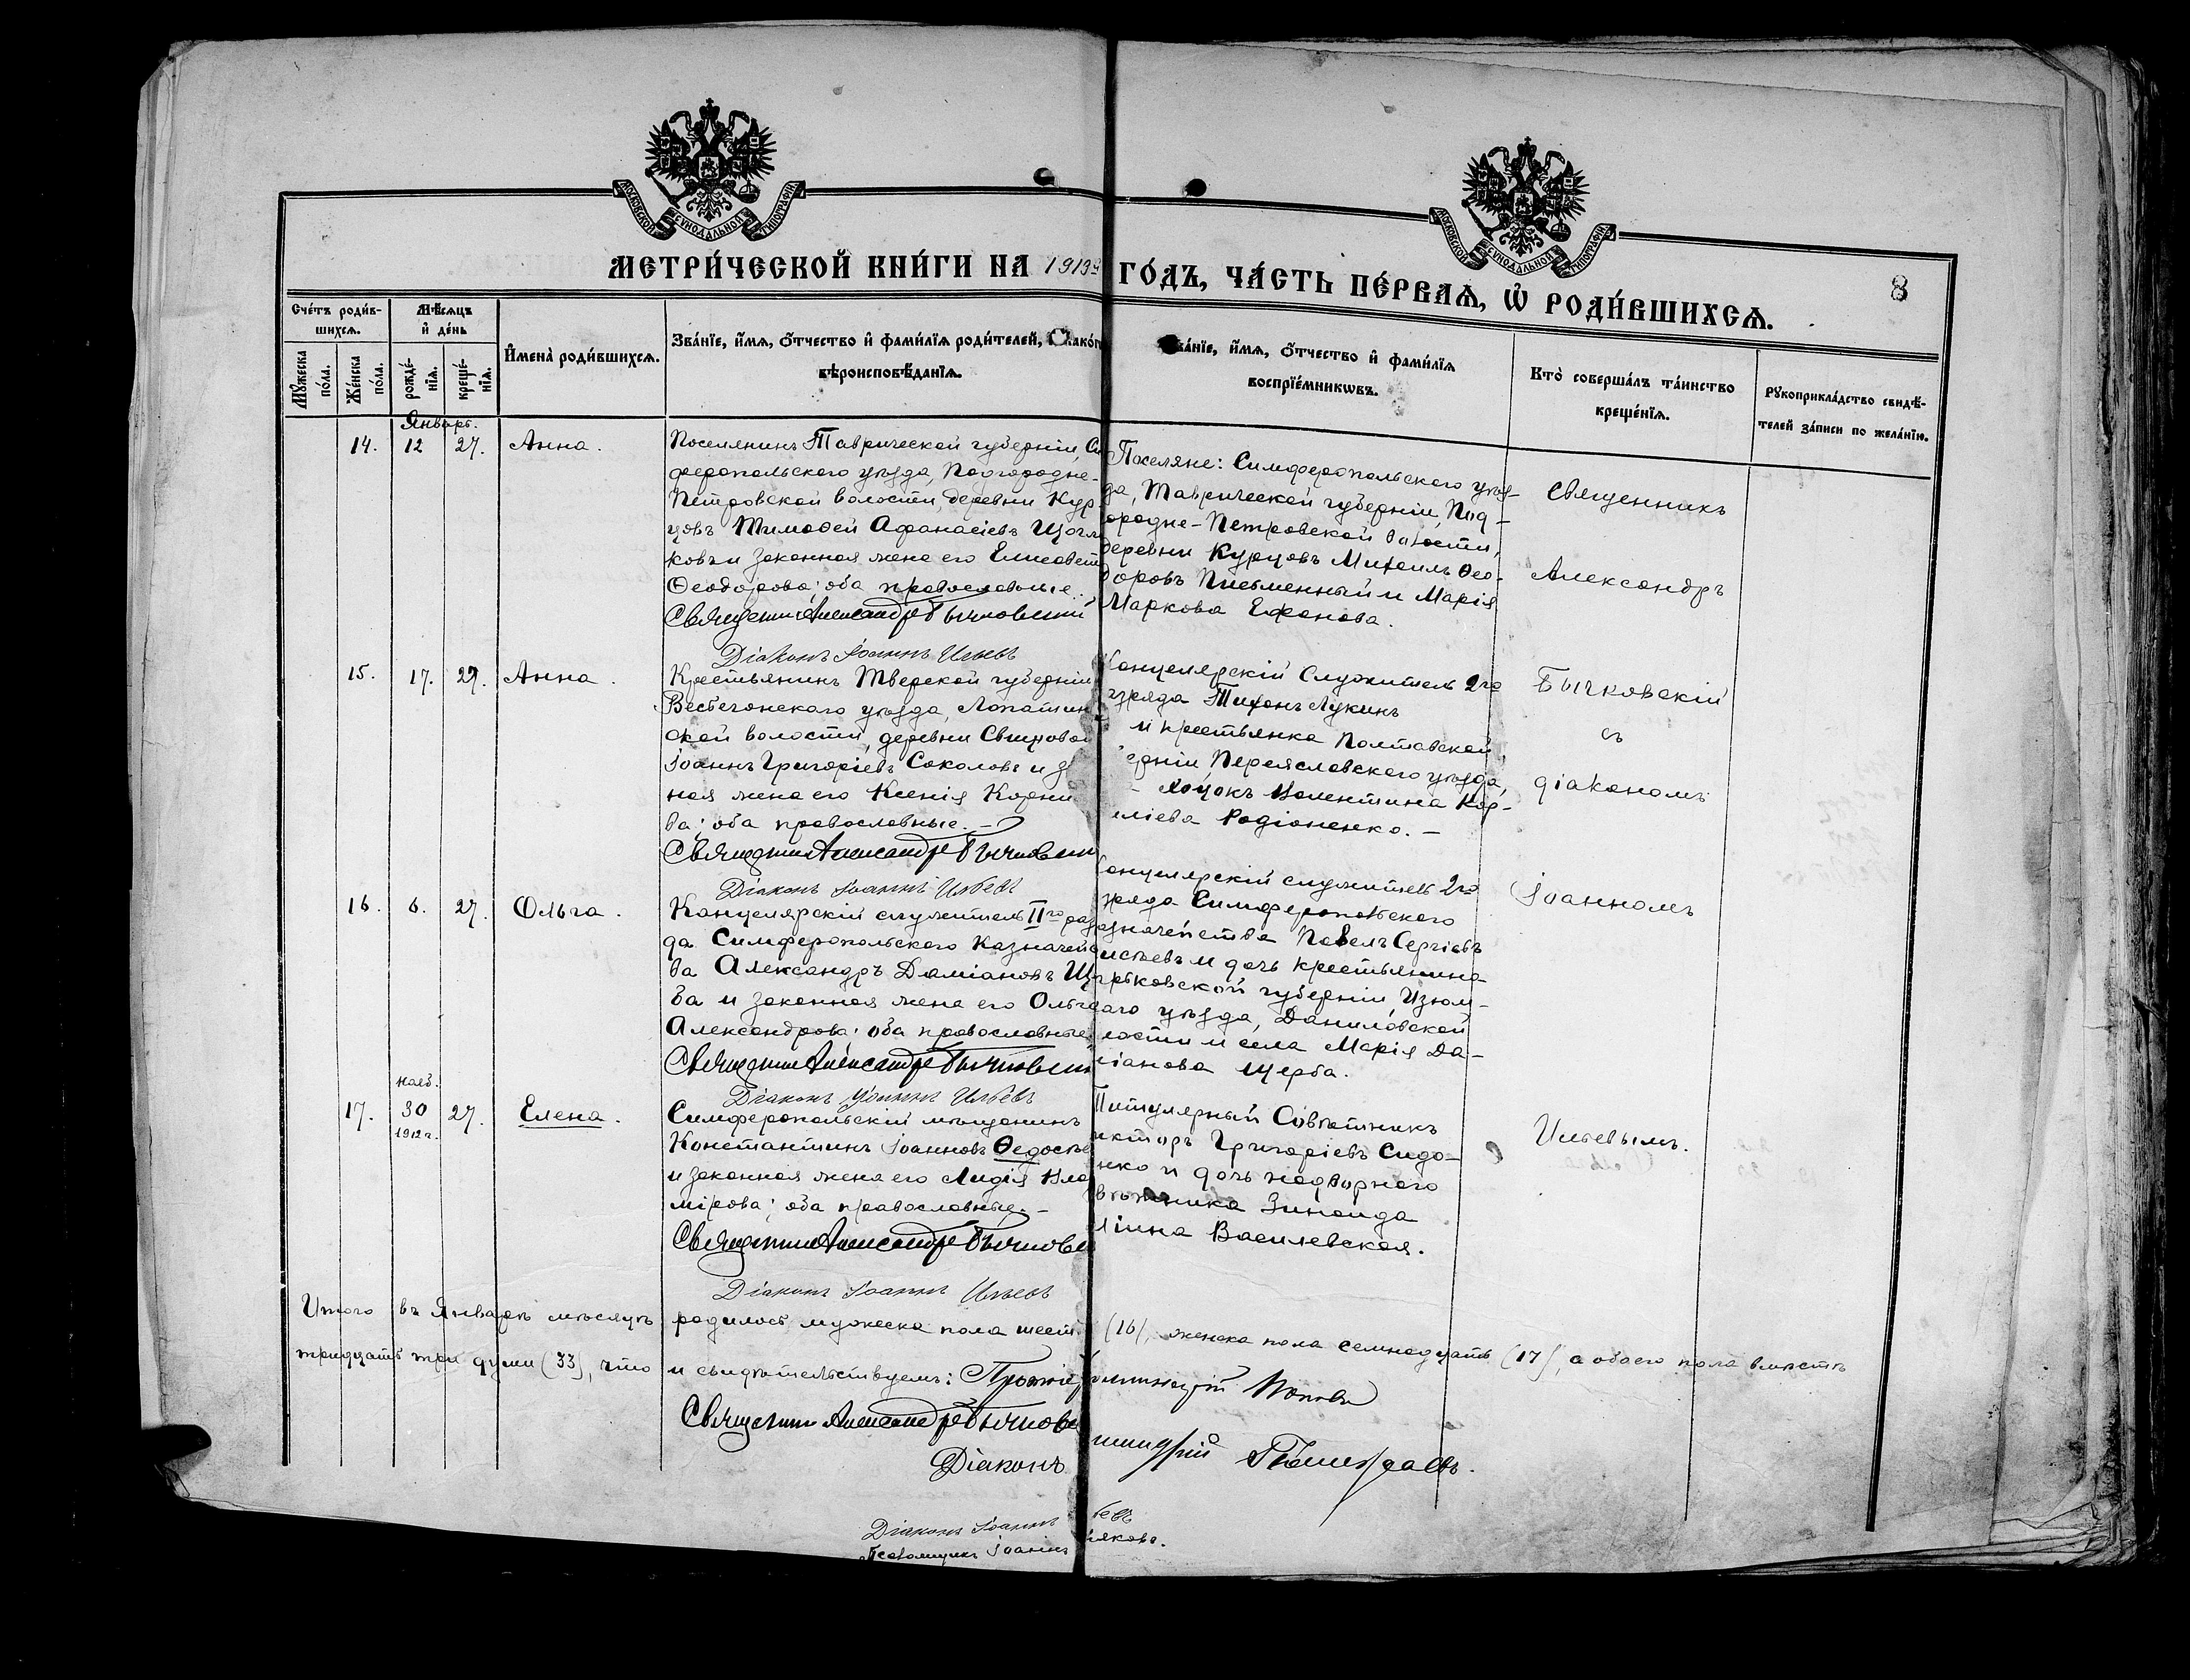 МОСКОВСКОЙ СѴНОДАЛЬНОЙ ТИПОГРАФІИ
МОСКОВСКОЙ СѴНОДАЛЬНОЙ ТИПОГРАФІИ
МЕТРИ́ЧЕСКОЙ КНИ́ГИ НА 1913й ГО́ДЪ, ЧА́СТЬ ПЕ́РВАѦ, Ѿ РОДИ́ВШИХСѦ.
8
Сче́тъ роди́в-
шихсѧ.
Мѣ́сѧцъ
и҆ де́нь
Мꙋ́жеска
по́ла.
Же́нска
по́ла.
рожде́-
нїѧ.
креще́-
нїѧ.
И҆мена̀ роди́вшихсѧ.
Зва́нїе, и҆́мѧ, ѻ҆́тчество и҆ фами́лїѧ роди́телей,
вѣроисповѣ́данїѧ.
Зва́нїе, и҆́мѧ, ѻ҆́тчество и҆ фами́лїѧ
воспрїе́мникѡвъ.
Кто̀ соверша́лъ та́инство
креще́нїѧ.
Рꙋкоприкла́дство свидѣ́-
телей за́писи по жела́нїю.
Январь.
14. 12 27. Анна.
Поселянинъ Таврической губерніи, Си
феропольского уѣзда, Подгородне-
Петровской волости, деревни Кур
цовъ Тимофей Афанасіевъ Щегл
ковъ и законная жена его Елисавет
Ѳеодорова; оба православные.
Священникъ Александръ Бычковский
Діаконъ Іоаннъ Ильевъ
Поселяне: Симферопольского уѣз-
да, Таврической губерніи, Под-
ородне-Петровской волости,
деревни Курцовъ Михаилъ Ѳео-
доровъ Письменный и Марія
Маркова Ефанова.
Священникъ
Александръ
Бычковскій
съ
діакономъ
Іоанномъ
Ильевымъ.
15. 17. 27. Анна.
Крестьянинъ Тверской губерніи
Весьегонского уѣзда, Лопатин
ской волости, деревни Свищово
Іоаннъ Григоріевъ Соколовъ и з
ная жена его Ксенія Корни
ва; оба православные.-
Священникъ Александръ Бычковски
Діаконъ Іоаннъ Ильевъ
Канцелярскій Служитель 2го
зряда Тихонъ Лукинъ
и крестьянка Полтавской
ерніи, Переяславского уѣзда,
Хоцокъ Валентина Кор-
иліева Родіоненко.-
16. 6. 27. Ольга.
Канцелярскій служитель IIго раз
да Симферопольского Казначейс
ва Александръ Даміановъ Щ
ба и законная жена его Ольга
Александрова; оба православные
Священникъ Александръ Бычковски
Діаконъ Іоаннъ Ильевъ
анцелярскій служитель 2го
зряда Симферопольского
азначейства Павелъ Сергіевъ
и дочь крестьянина
рьковской губерніи, Изюм-
аго уѣзда, Даниловской
лости и села Марія Да-
міанова Щерба.
нояб.
17. 30 27. Елена.
1912 г.
Симферопольскій мѣщанинъ
Константинъ Іоанновъ Ѳедосѣе
и законная жена его Лидія Вла
мірова; оба православные.-
Священникъ Александръ Бычковски
Діаконъ Іоаннъ Ильевъ
Титулярный Совѣтникъ
икторъ Григоріевъ Сидо-
нко и дочь надворного
вѣтника Зинаида
Василевская.
Итого въ Январѣ мѣсяцѣ родилось мужеска пола шест (16), женска пола семнадцать (17), а обоего пола вмѣстѣ
тридцать три души (33), что и свидѣтельствуемъ: Протоіе Поповъ
Священникъ Александръ Бычков
Діаконъ
Діаконъ Іоаннъ
Псаломщикъ Іоаннъ